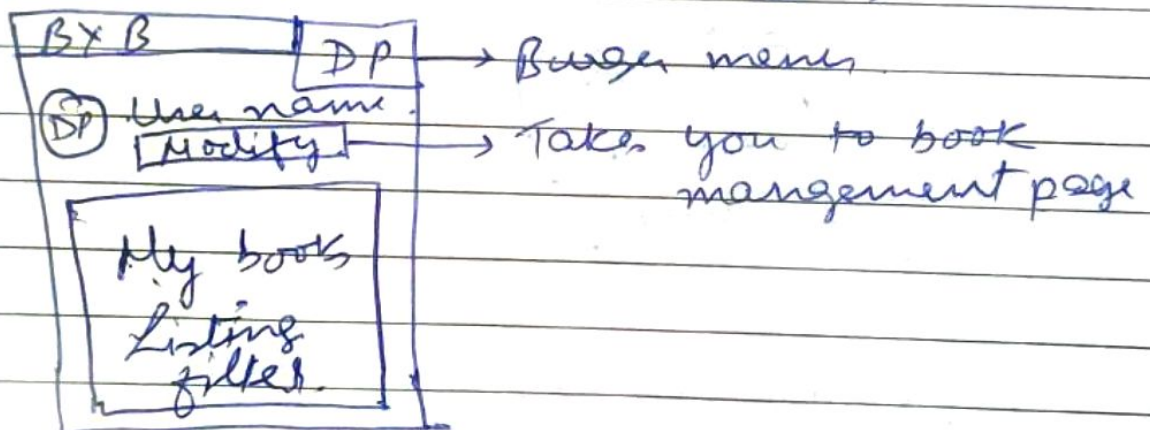 BXB
DP → Burger menu
DP User name.
Modify → Takes you to book
mangement page
My books
Listing
filter.